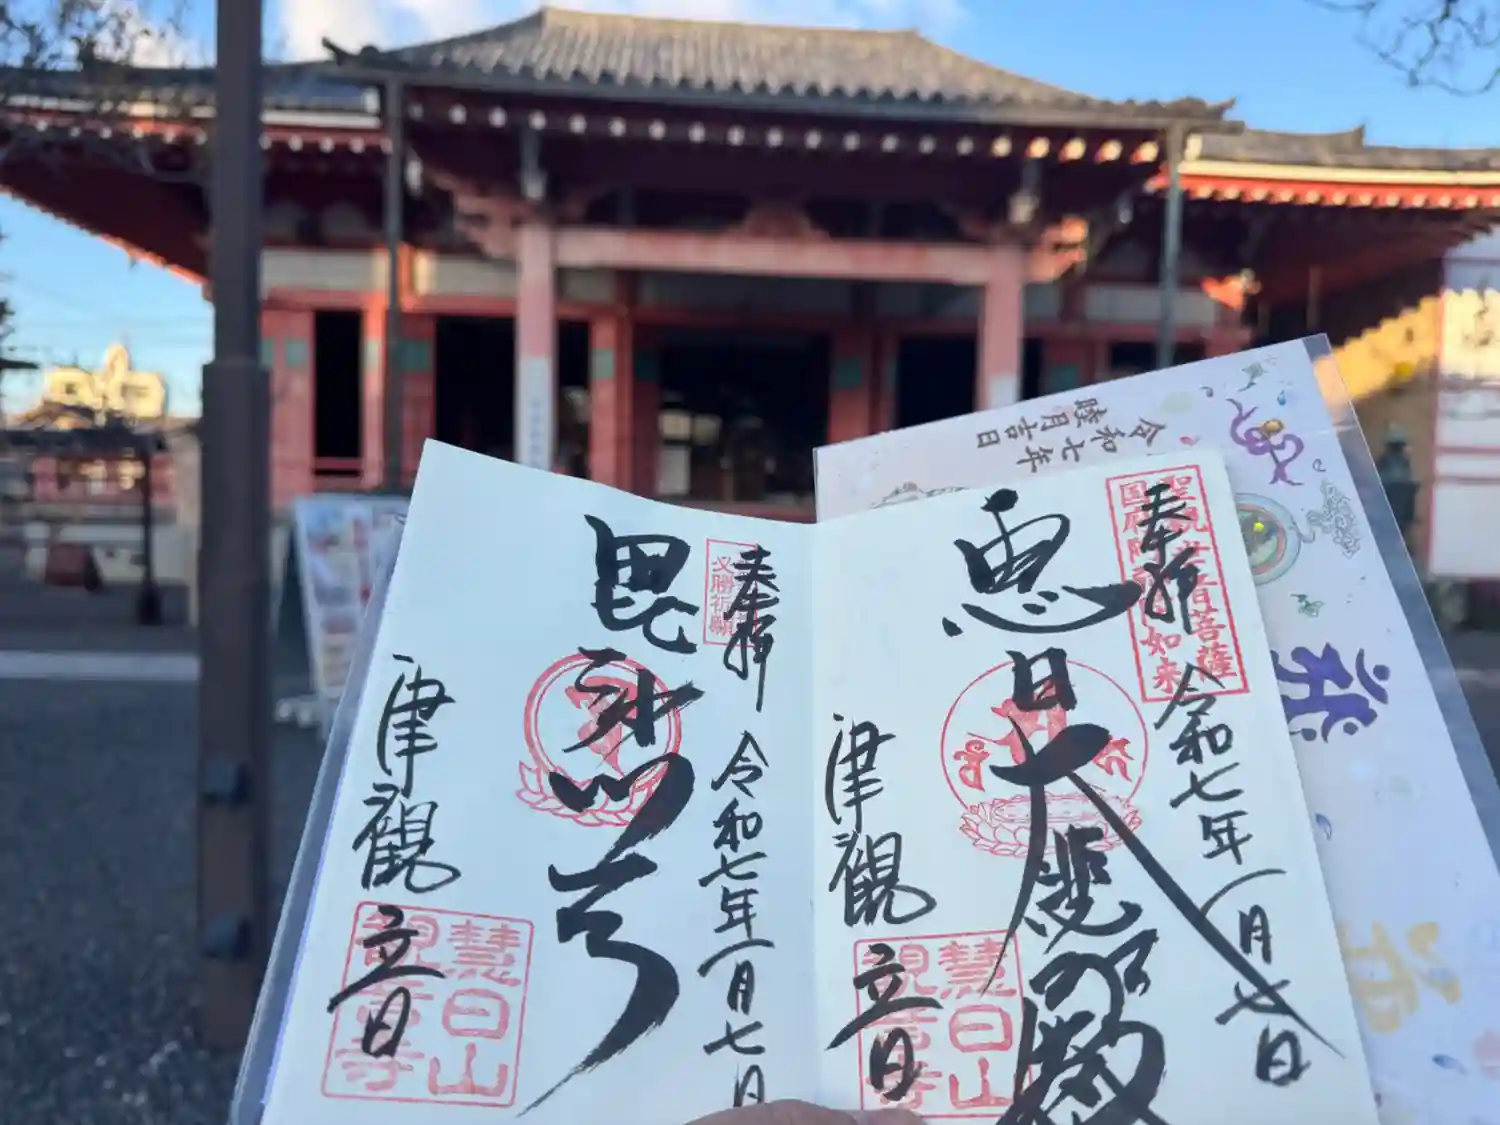 奉拝
聖観世音菩薩
国府阿弥陀如来
令和七年一月七日
恵日大悲殿
津観音
慧日山
観音寺
奉拝
必勝祈願
令和七年一月七日
毘沙門天
津観音
慧日山
観音寺
令和七年
睦月吉日